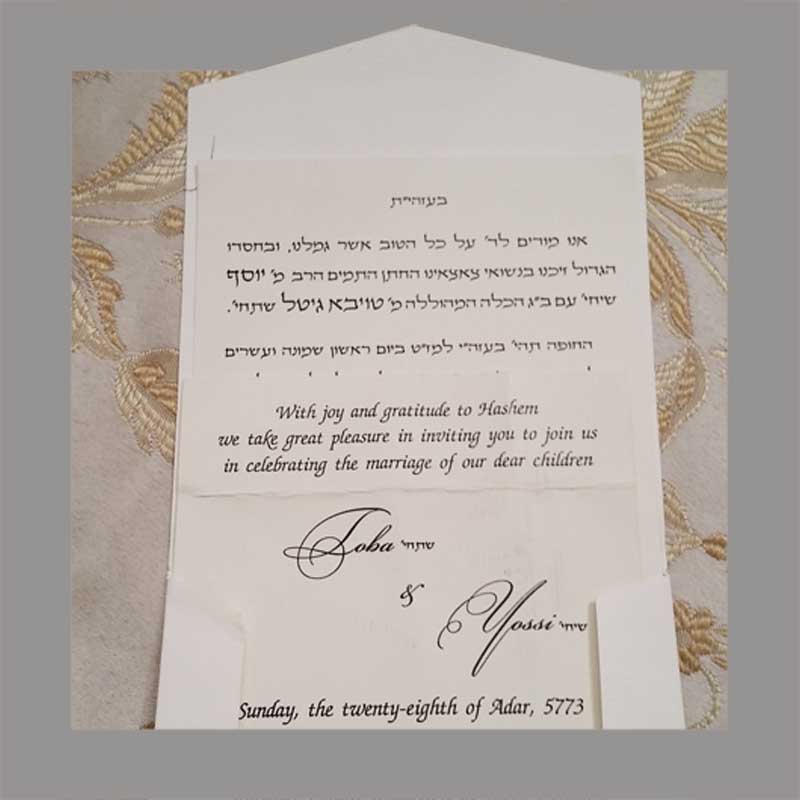 בעזהי״ת
אנו מודים לד׳ על כל הטוב אשר גמלנו, ובחסדו
הגדול זיכנו בנשואי צאצאינו החתן התמים הרב מ׳ יוסף
שיחי׳ עם ב״ג הכלה המהוללה מ׳ טויבא גיטל שתחי׳.
החופה תהי׳ בעזה״י למז״ט ביום ראשון שמונה ועשרים
With joy and gratitude to Hashem
we take great pleasure in inviting you to join us
in celebrating the marriage of our dear children
Toba שתחי׳
&
Yossi שיחי׳
Sunday, the twenty-eighth of Adar, 5773